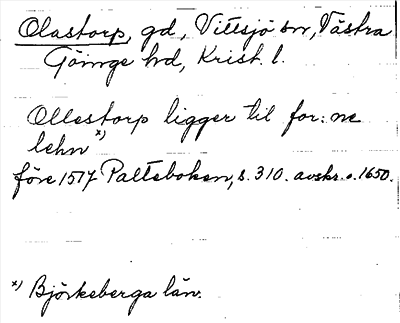 Olastorp, gd, Vittsjö sn, Västra
Göinge hd, Krist. l.
Ollestorp ligger til for: ne
lehn *)
före 1517 Palteboken, s. 310. avskr. o. 1650.
*) Björkeberga län.